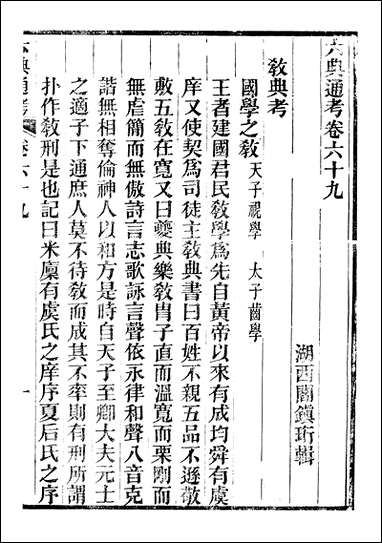 六典通考卷六十九
湖西閻鎮珩輯
教典考
國學之教 天子視學 太子齒學
王者建國君民教學爲先自黄帝以來有成均舜有虞
庠又使契爲司徒主敎典書曰百姓不親五品不遜敬
敷五敎在寛又曰夔典樂敎胄子直而溫寛而栗剛而
無虐簡而無傲詩言志歌詠言聲依永律和聲八音克
諧無相奪倫神人以和方是時自天子至卿大夫元士
之適子下通庶人莫不待敎而成其不率則有刑所謂
扑作敎刑是也記曰米廩有虞氏之庠序夏后氏之序
六典通考
卷六十九
一